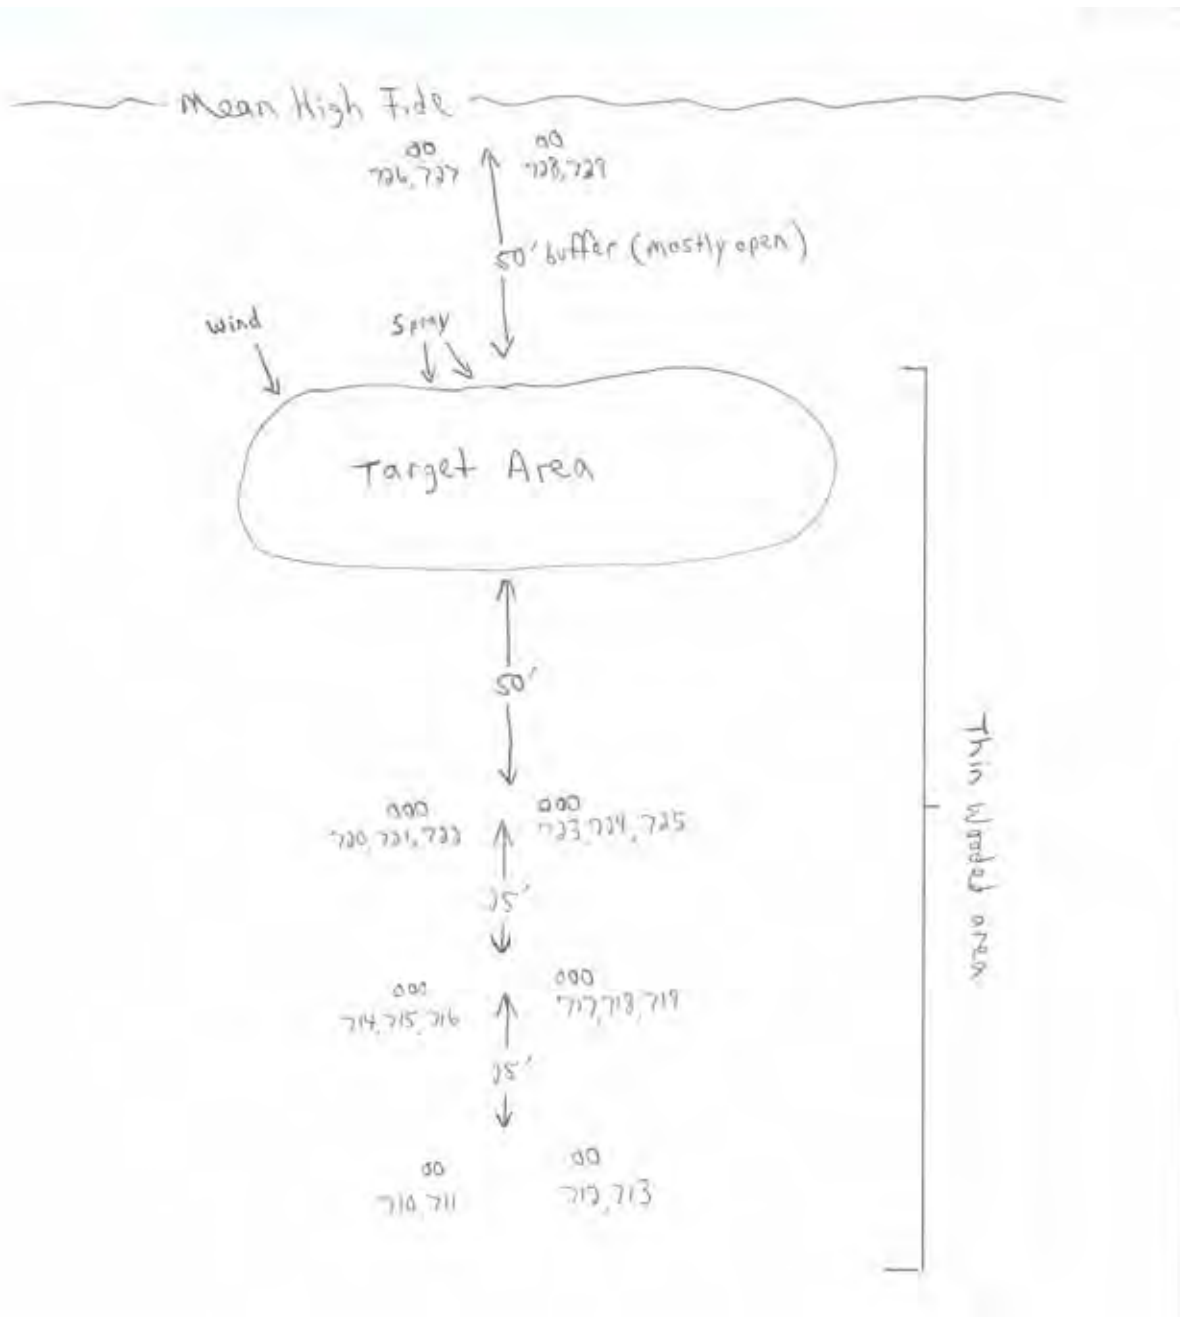 Mean High Tide
00 00
726,727 728,729
50' buffer (mostly open)
wind Spray
Target Area
50'
000 000
720,721,722 723,724,725
25'
000 000
714,715,716 717,718,719
25'
00 00
710,711 712,713
Thin Wooded area